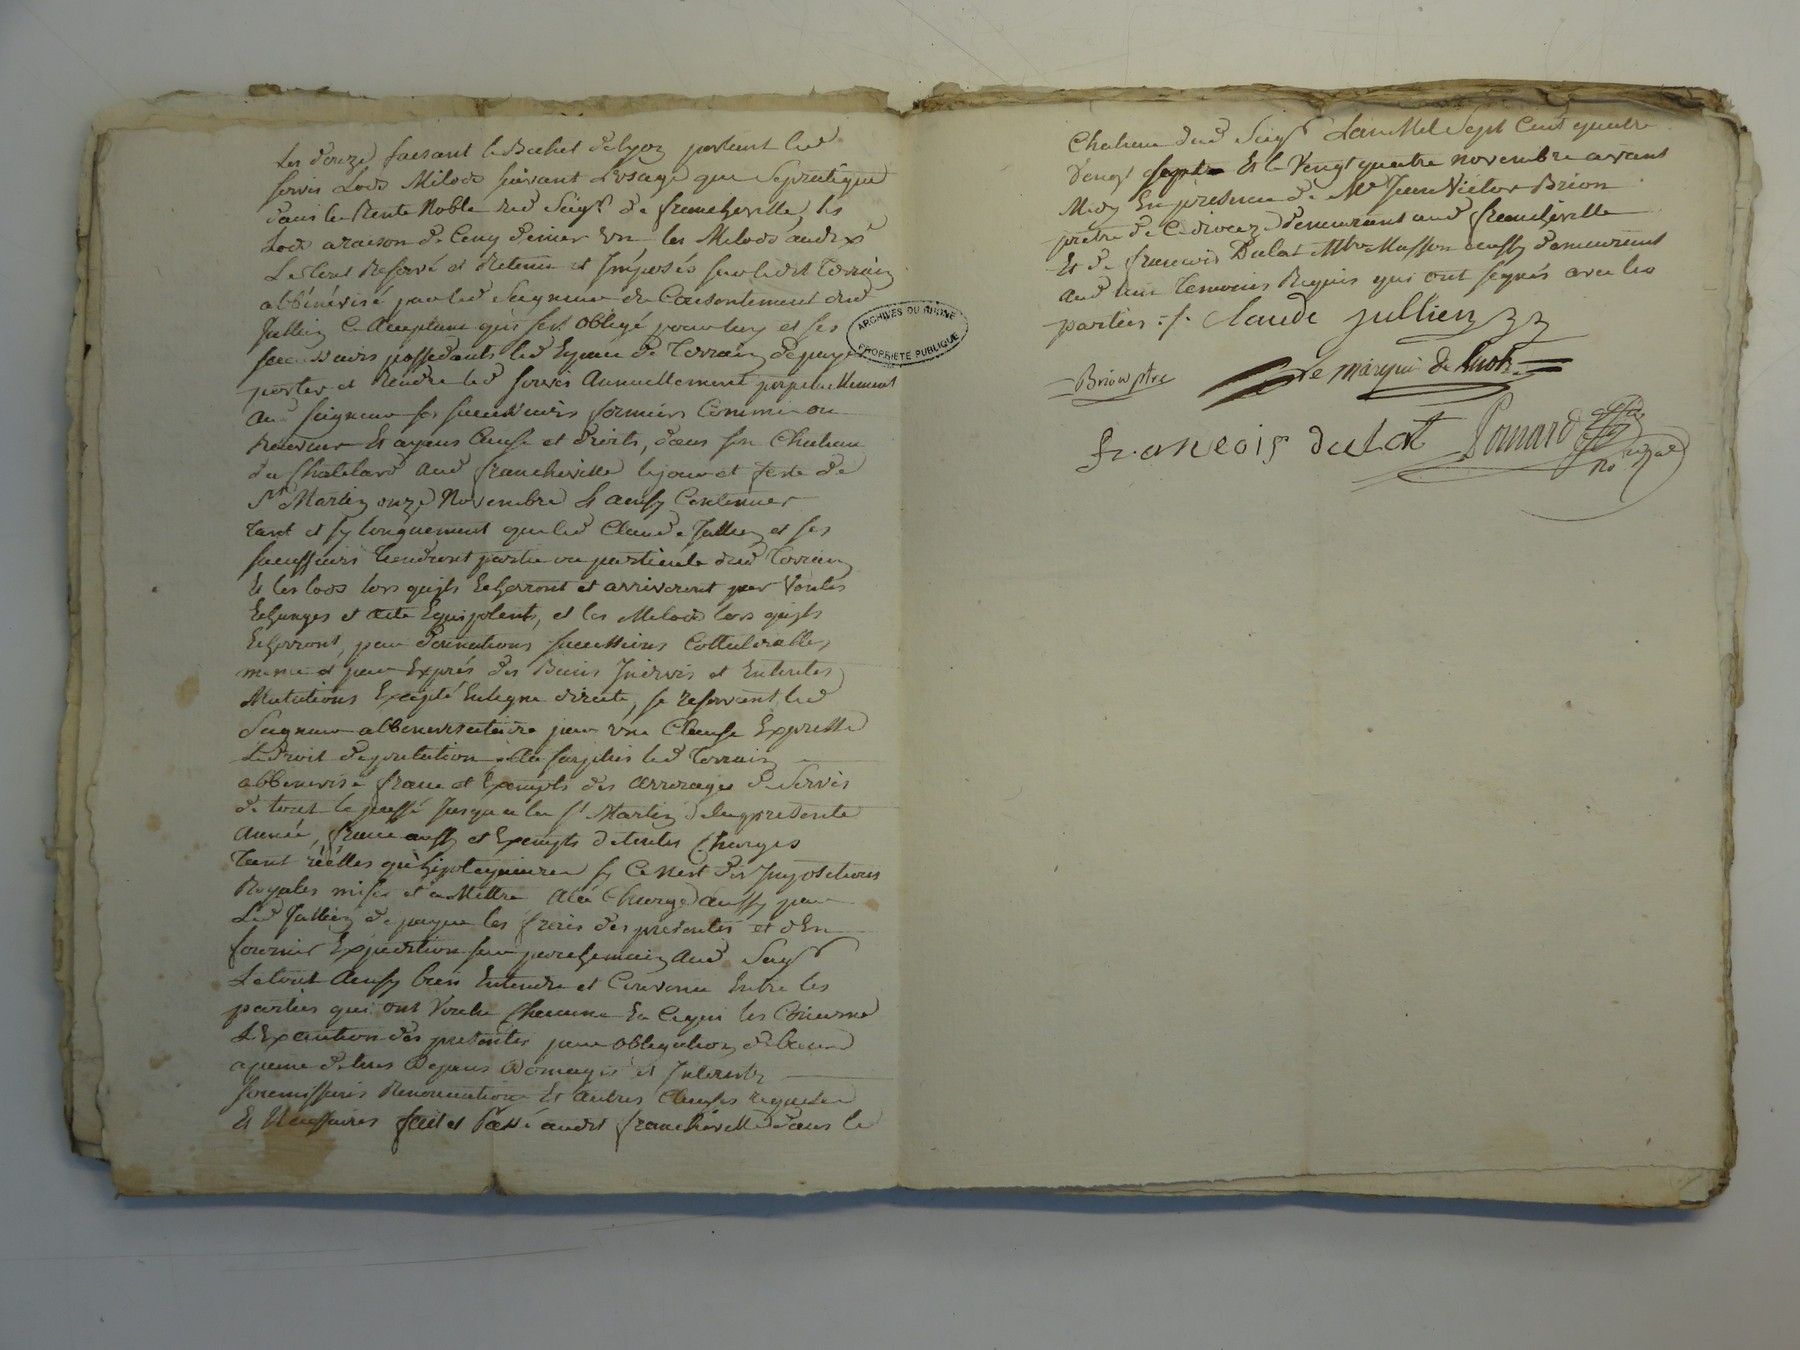 Les douze faisant le Bichet de lyon portant led
servis Lods Milods suivant L'usage que se pratique
dans la Rente Noble dud Seigr de francheville, les
Lods a raison de Cinq denier Un les Milods au dixe
Le tout Reservé et Retenu et Imposés sur ledit Terrain
abbénévisé par led Seigneur du Consentement dud
Jullien Ce Acceptant qui s'est Obligé pour luy et ses
successeurs possedants led Espace de Terrain de payer
porter et Rendre led servis Annuellement perpetuellement
aud Seigneur ses successeurs fermiers Commis ou
Receveur Et ayans Cause et droits, dans son Chateau
du Chatelard aud francheville le jour et feste de
St Martin onze Novembre Et ainsy Continuer
tant et sy longuement que led Claude Jullien et ses
successeurs tiendront partie ou particule dud Terrain
Et les lods lors quils Echerront et arriveront par Ventes
Echanges et acte Equipolents, et les Milods lors quils
Echerront, par donations successions Collateralles,
meme et par Exprés des Biens Indivis et En toutes
Mutations Excepté En ligne directe, se reservant led
Seigneur abbenevisataire par une Clause Expresse
Le droit de prelation. Au surplus led Terrain
abbenevisé franc et Exempts des arrerages de Servis
de tout le passé Jusqu'a la St Martin de la presente
Année, franc aussy et Exempts de toutes Charges
tant réélles qu'hipotequaires sy Ce n'est des Impositions
Royales mises et a Mettre A la Charge aussy par
Led Jullien de payer les frais des presentes et d'En
fournir Expedition sur parchemin Aud Seigr
Le tout Ainsy bien Entendu et Convenu Entre les
parties qui ont Voulu Chacune En Ce qui les Concerne
L'Execution des presentes par obligation de biens
a peine de tous Depens Domages et Interets
soumissions Renonciation Et autres Clauses requises
Et Necessaires fait et Passé audit francheville dans le
Chateau dud Seigr L'an Mil Sept Cent quatre
Vingt sept Et le Vingt quatre novembre avant
Midy En presence de Mre Jean Victor Brion
prêtre de Ce dioceze demeurant aud francheville
Et de francois Dulat Mtre Masson aussy demeurant
aud lieu Temoins Requis qui ont signés avec les
parties :/.
claude jullien
Brion ptre
Le marqui de
francois dulat
nore royal
ARCHIVES DU RHÔNE
PROPRIÉTÉ PUBLIQUE